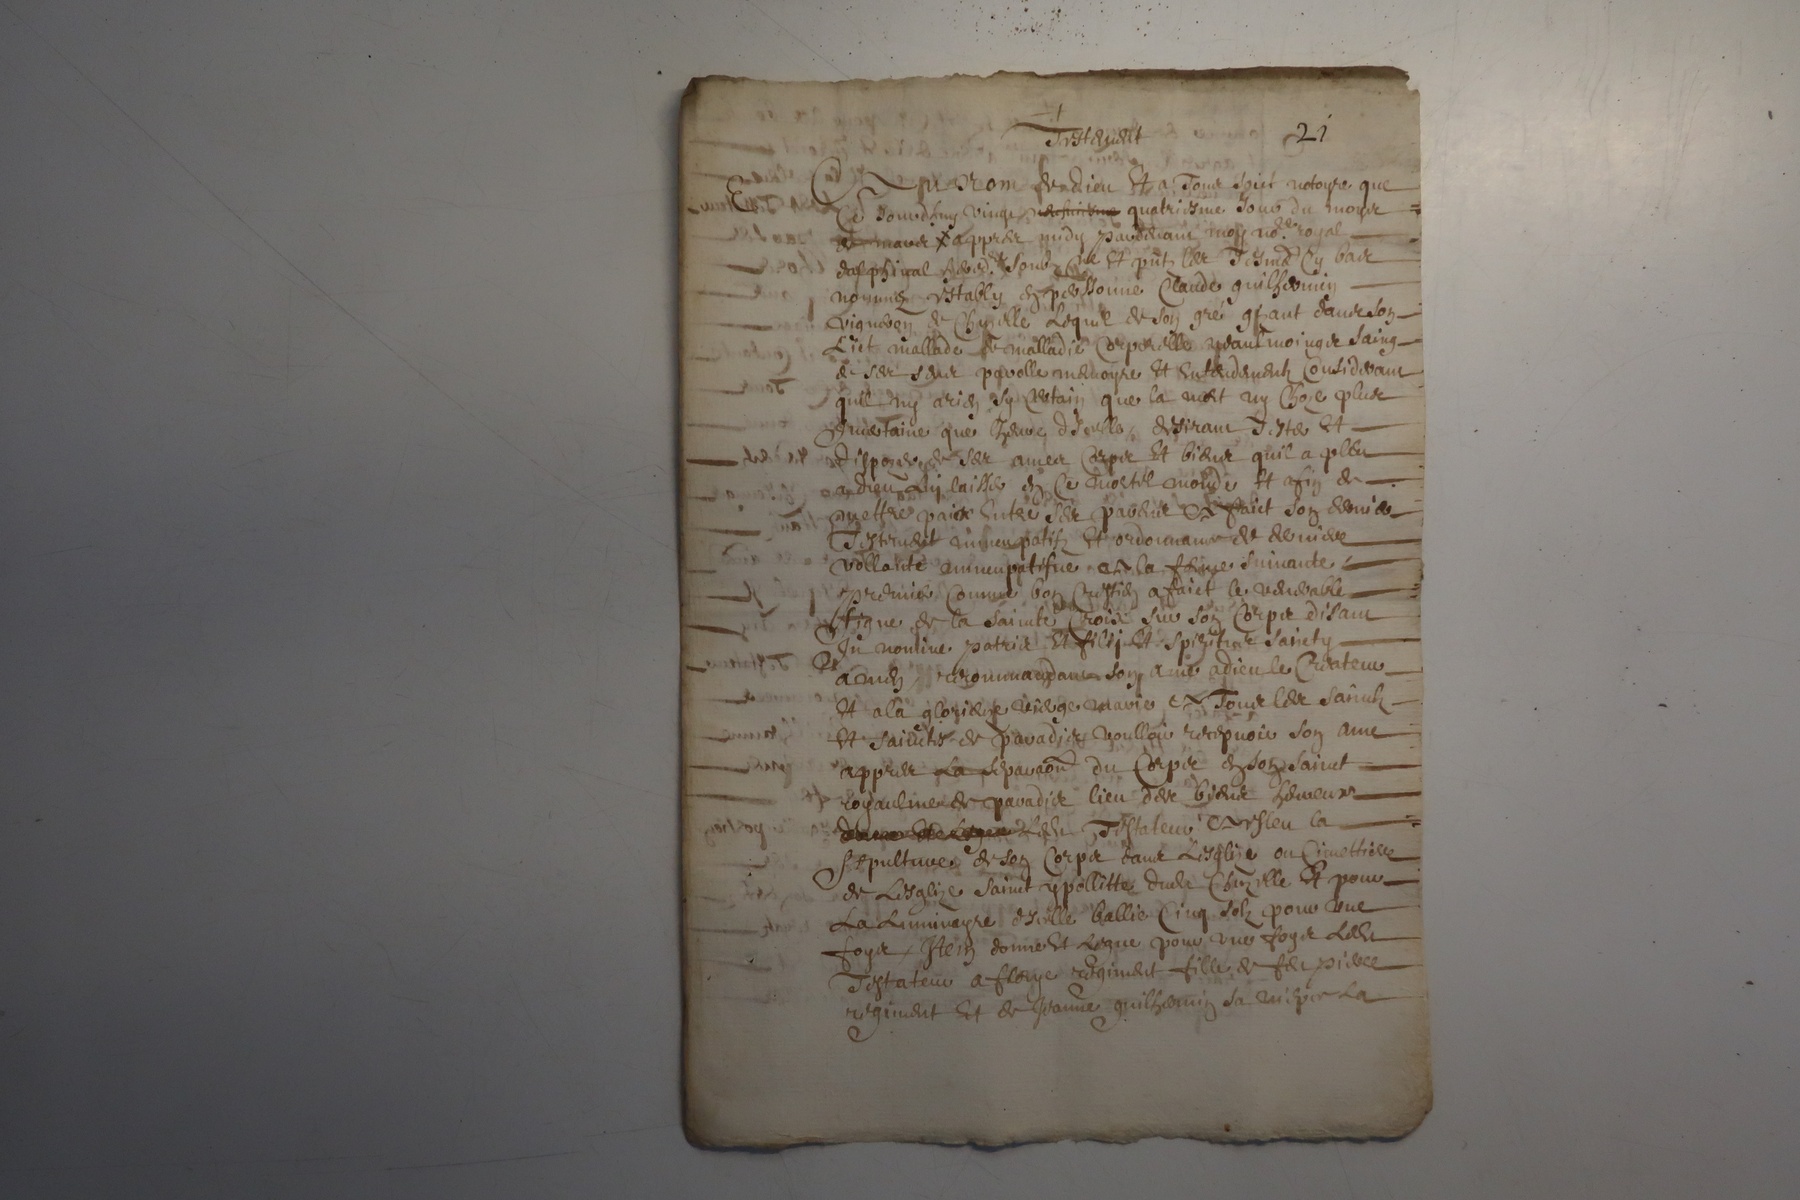 Testament 21
Au Nom de dieu Et a Tous soict notoyre que
Ce Jourdhuy vingt quatriesme Jour du moys
de mars appres midy pardevant moy nore royal
dalphinal soubz Et les Tesmoings Cy bas
nommez estably en personne Claude guilhermin
vigneron de Chuzelle Lequel de son gré estant dans son
Lict mallade de malladie Corporelle neantmoings saing
de ses sens parolle memoyre Et Entendement Considerant
quil ny a rien sy Certain que la mort ny Choze plus
Incertaine que lheure dicelle desirant Tester Et
disposer de ses ames Corps Et biens quil a pleu
a dieu luy laisser en Ce mortel monde Et afin de
mettre paix Entre ses parans a faict son dernier
Testament nuncupatif Et ordonnance de derniere
vollanté nuncupatifve a la forme suivante
premier Comme bon Crestien a faict le venerable
signe de la sainte Croix sur son Corps disant
In nomine patris Et filij Et spiritus sancty
amen recommandant son ame a dieu le Createur
Et a la glorieuse vierge marie Et a Tous les saincts
Et sainctes de paradis voulloir recepvoir son ame
appres La separaon du Corps en son sainct
royaulme de paradis lieu des biens heureux
Ledt Testateur a Esleu la
sepulture de son Corps dans Lesglize ou Cimettiere
de Lesglize sainct ypollitte dudt Chuzelle Et pour
La Luminayre dicelle ballie Cinq solz pour une
foys / Item donne Et Legue pour une foys Ledt
Testateur a regiment fille de feu pierre
regiment Et de Jeanne guilhermin sa niepce La